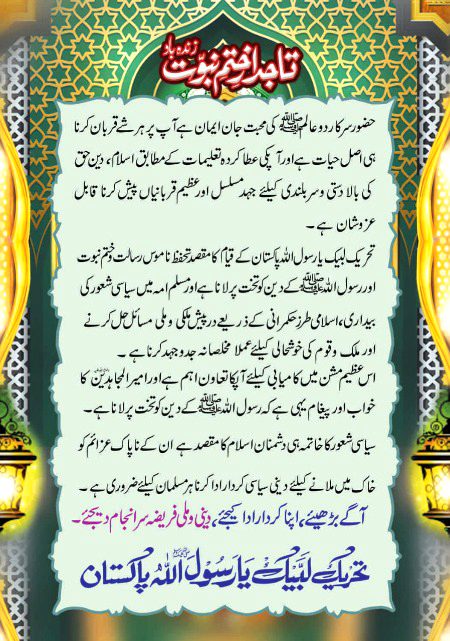 تاجدارِ ختمِ نبوّت زندہ باد
حضور سرکار دو عالم ﷺ کی محبت جان ایمان ہے آپ پر ہر شے قربان کرنا
ہی اصل حیات ہے اور آپکی عطا کردہ تعلیمات کے مطابق اسلام، دین حق
کی بالا دستی و سر بلندی کیلئے جہد مسلسل اور عظیم قربانیاں پیش کرنا قابل
عز و شان ہے ۔
تحریک لبیک یا رسول اللہ پاکستان کے قیام کا مقصد تحفظ ناموس رسالت و ختم نبوت
اور رسول اللہ ﷺ کے دین کو تخت پر لانا ہے اور مسلم امہ میں سیاسی شعور کی
بیداری، اسلامی طرز حکمرانی کے ذریعے درپیش ملکی و ملی مسائل حل کرنے
اور ملک و قوم کی خوشحالی کیلئے عملا مخلصانہ جدوجہد کرنا ہے ۔
اس عظیم مشن میں کامیابی کیلئے آپکا تعاون اہم ہے اور امیر المجاہدین کا
خواب اور پیغام یہی ہے کہ رسول اللہ ﷺ کے دین کو تخت پر لانا ہے۔
سیاسی شعور کا خاتمہ ہی دشمنان اسلام کا مقصد ہے ان کے ناپاک عزائم کو
خاک میں ملانے کیلئے دینی سیاسی کردار ادا کرنا ہر مسلمان کیلئے ضروری ہے ۔
آگے بڑھیئے، اپنا کردار ادا کیجئے، دینی و ملی فریضہ سرانجام دیجئے۔
تحریک لبیک یا رسول اللہ ﷺ پاکستان